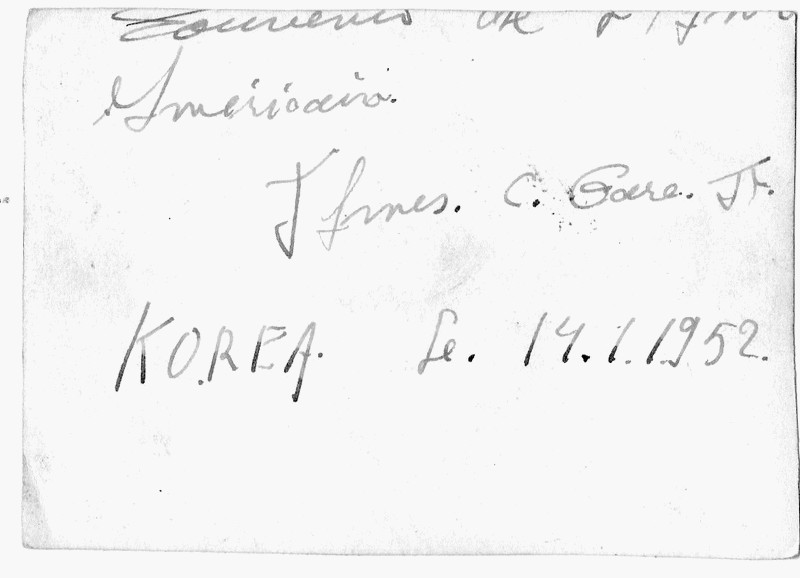 Souvenir de
Américain.
James. C. Gare. Jr.
KOREA. Le. 14.1.1952.